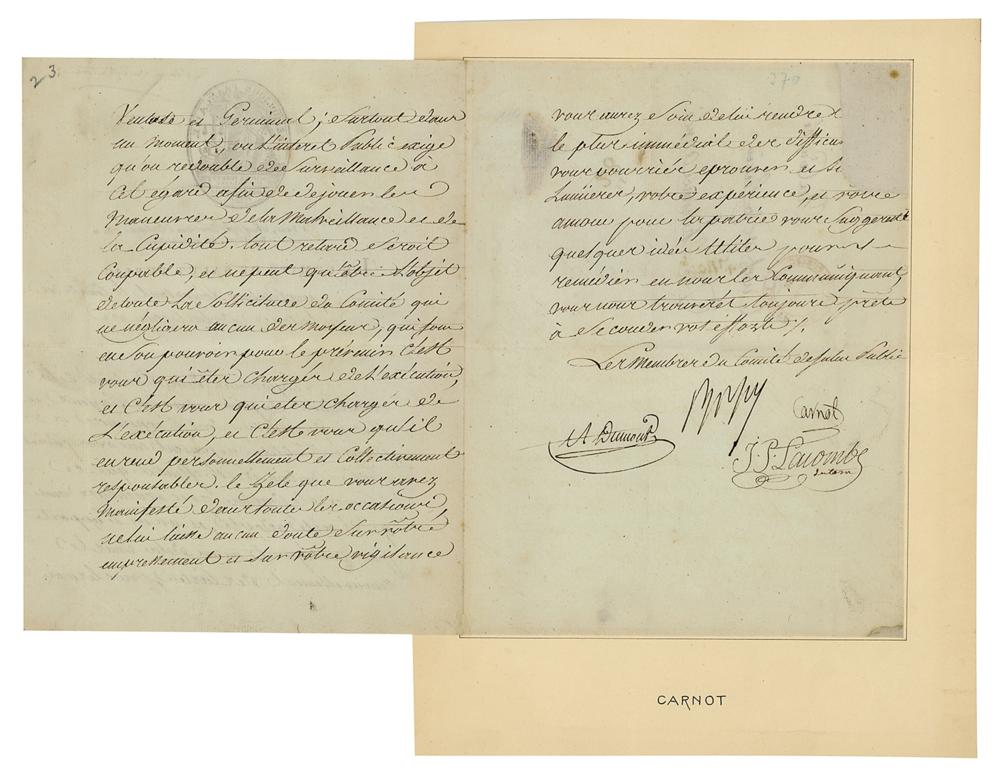 23
Ventose et Germinal; surtout dans
un moment, ou L'interet Public exige
qu'on redouble de Surveillance à
cet egard afin de dejouer les
Maneuvres de la Malveillance et de
la Cupidité. tout retard seroit
Coupable, et ne peut qu'être L'objet
de toute La Sollicitude du Comité qui
ne négligera aucun des Moyens, qui sont
en Son pouvoir pour le prévenir C'est
vous qui êtes Chargés de L'exécution,
et C'est vous qui êtes Chargés de
L'exécution, et C'est vous qu'il
en rend personnellement et Collectivement
responsables. le Zele que vous avez
Manifesté dans toutes les occasions,
ne lui laisse aucun doute sur vôtre
empressement et sur vôtre vigilance
370
vous aurez Soin de lui rendre
le plus immédiat des difficu
vous pourriés eprouver et si
Lumieres, votre expérience, et votre
amour pour la patrie vous Suggerent
quelques idées Utiles pour
remédier en nous les Communiquant,
vous nous trouverez toujours prêts
à Seconder vos éfforts ./.
Les Membres du Comité de Salut Public
A Dumont
Carnot
J. P. Lacombe
CARNOT